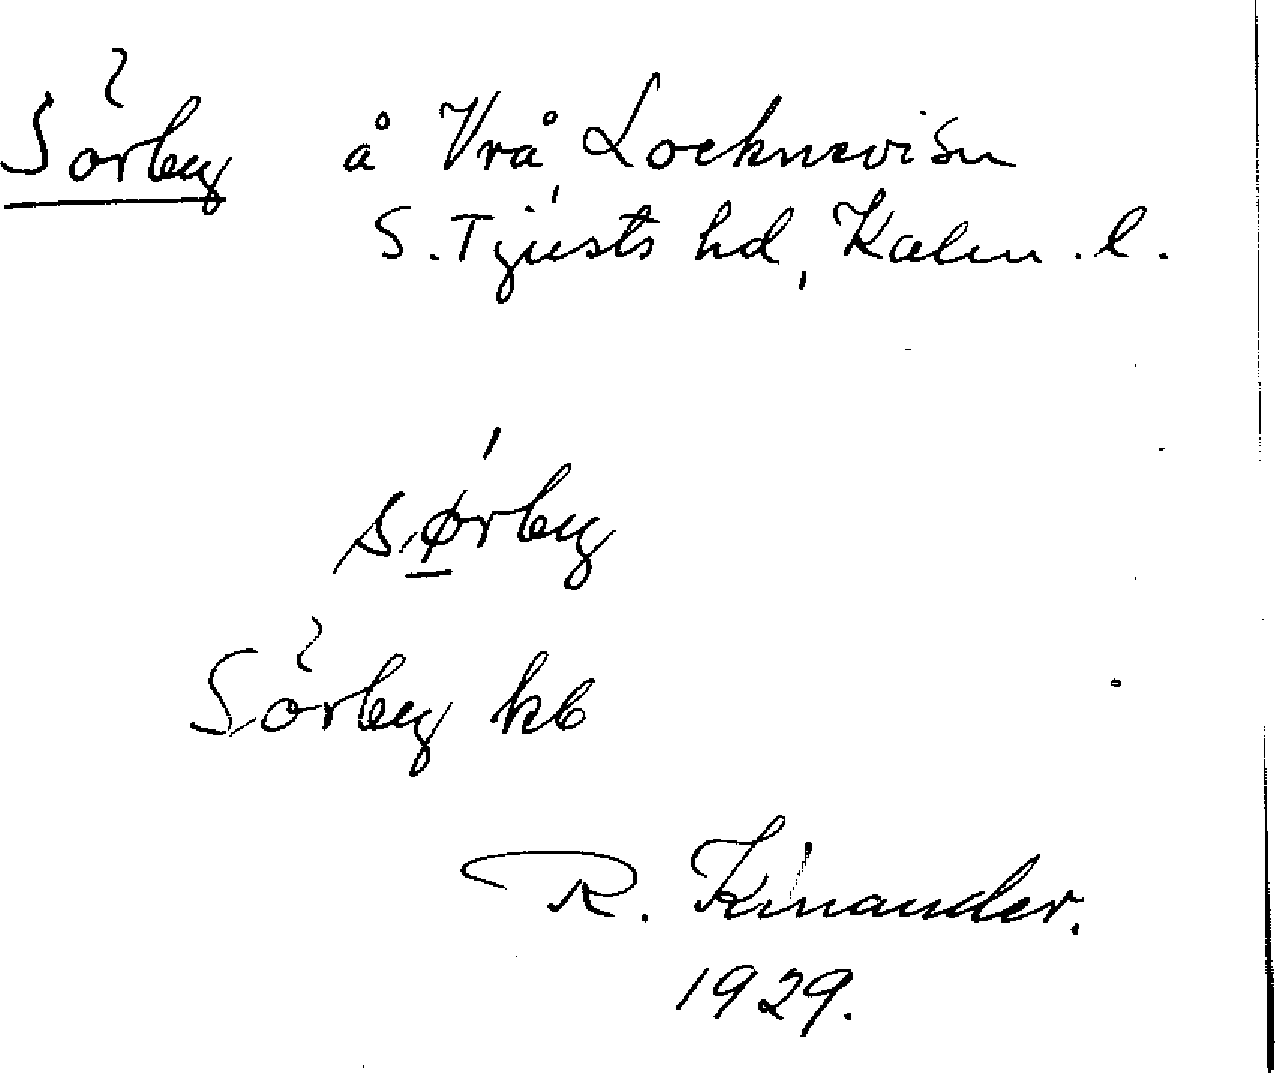 Sörby å Vrå, Locknevi sn
S. Tjusts hd, Kalm. l.
sø̱rby
Sörby kb
R. Kinander.
1929.